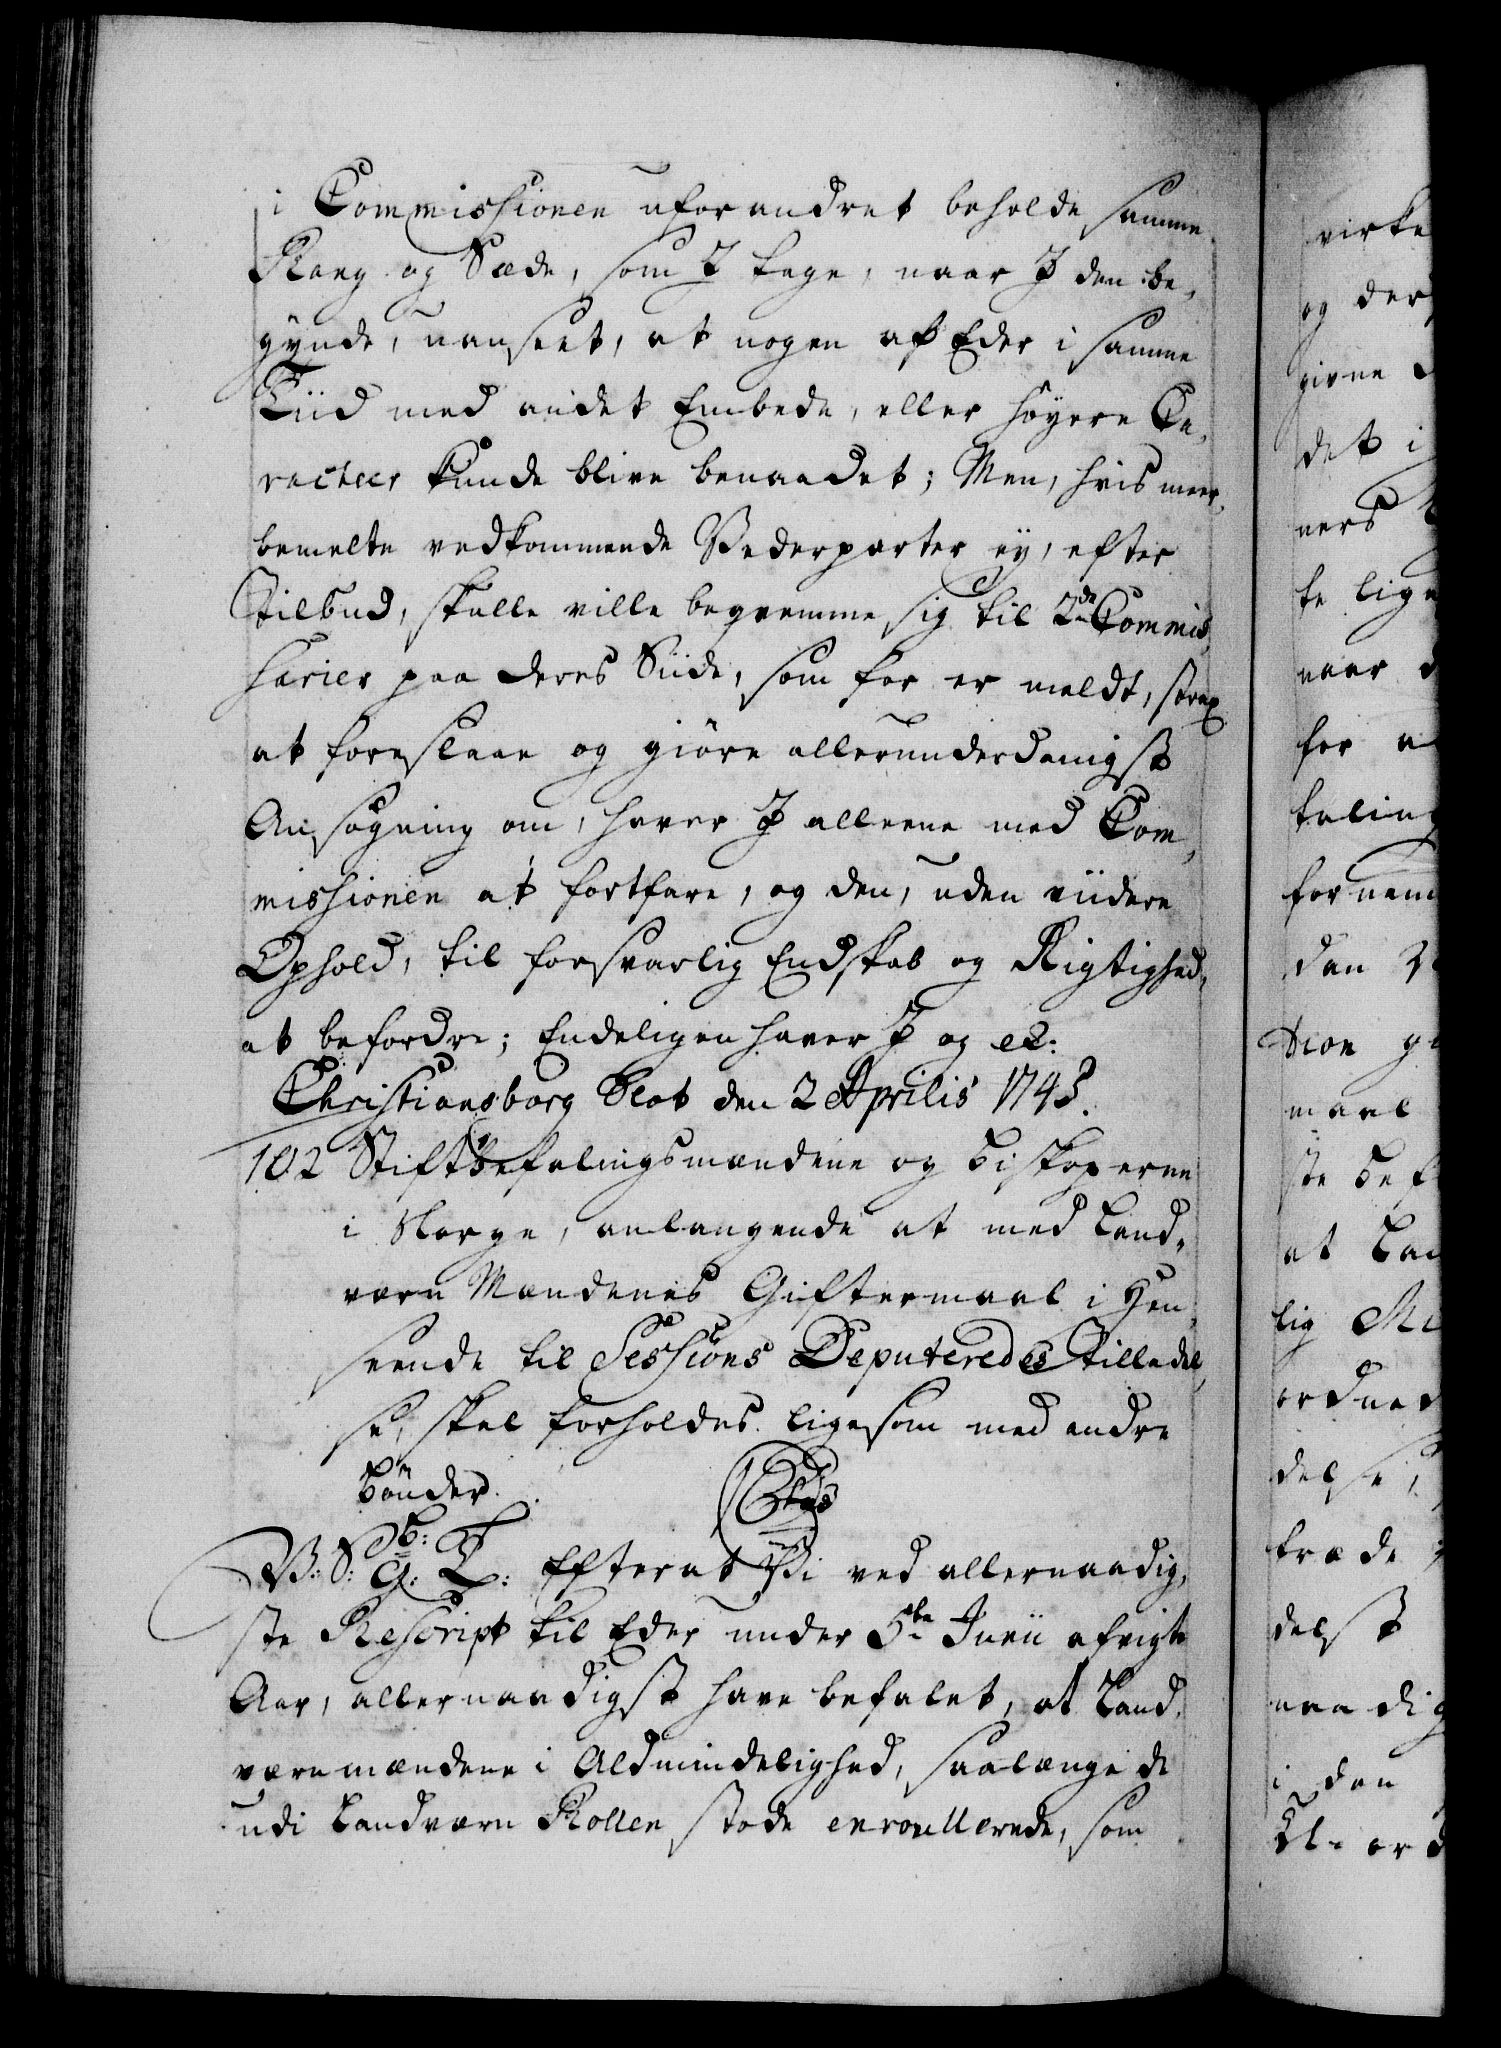 i Commissionen uforandret beholde samme
Rang og Sæde, som I tage, naar I den be,
gynde, uanseet, at nogen af Eder i samme
Tiid med andet Embede, eller høyere Ca,
racteer kunde blive benaadet; Men, hvis meer,
bemelte vedkommende Vederparter ey, efter
Tilbud, skulle ville beqvemme sig til 2de Commis,
sarier paa deres Siide, som før er meldt, strax
at foreslaae og giøre allerunderdanigst
Ansøgning om, haver I alleene med Com,
missionen at fortfare, og den, uden viidere
Ophold, til forsvarlig Endskab og Rigtighed,
at befordre; Endeligen haver I og etc:
Christiansborg Slot den 2 Aprilis 1745.
102 Stiftbefalingsmændene og Biskoperne
i Norge, anlangende at med Land,
værn Mændenes Giftermaal i Hen,
seende til Sessions Deputeredes Tilladel,
se, skal forholdes ligesom med andre
Bønder.
V: S: B: G: T: Efterat Vi ved allernaadig,
ste Rescript til Eder under 5te Junii afvigte
Aar, allernaadigst have befalet, at Land,
værnmændene i Aldmindelighed, saalænge de
udi Landværn Rollen stode enroullerede, som
virke
og der
givne
det i
ners
te lige
naar
for
taling
fornem
den
tion
maal
ste Bef
at Lan
lig
ordned
delse,
træde
delst
naadig
i den